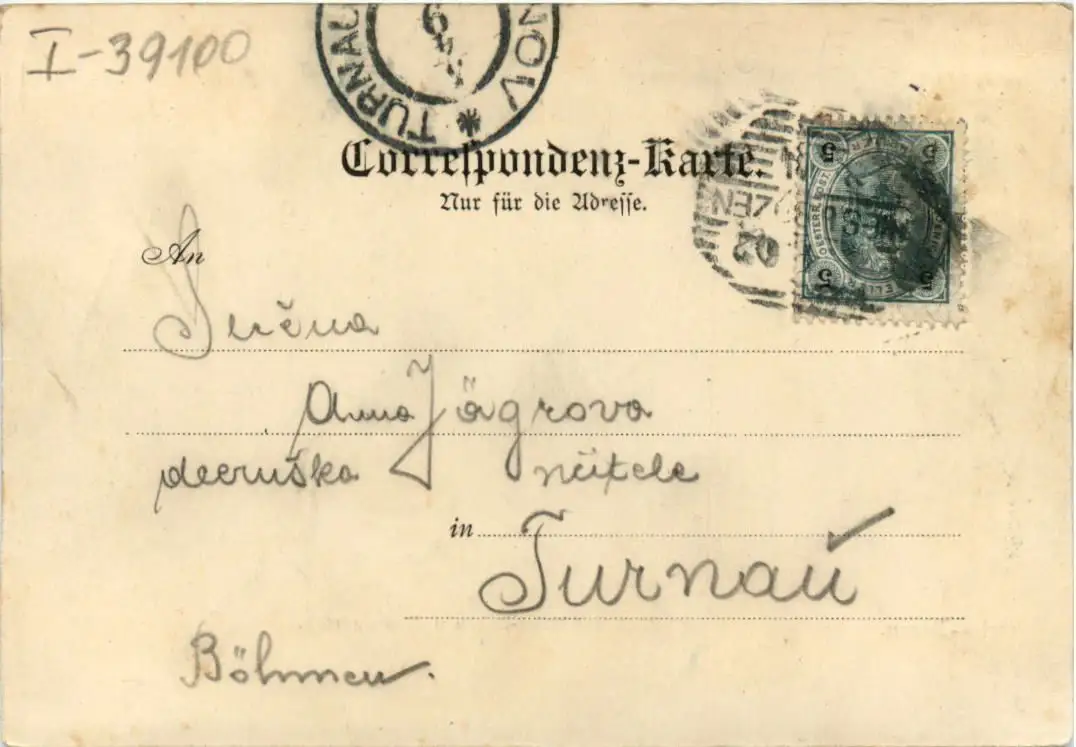 I-39100
TURNAU * TURNOV
6
Correspondenz-Karte.
Nur für die Adresse.
ZEN
02
5 5
OESTERR. POST
5 5
HELLER
An
Slečna
Anna Jägrova
dceruška
in Turnau
Böhmen.